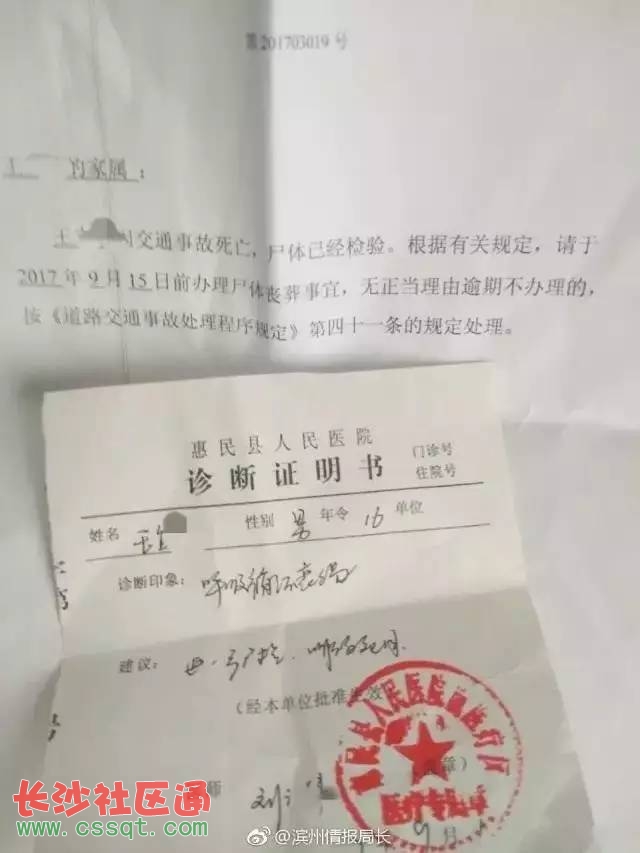 第201703019号
的家属：
因交通事故死亡，尸体已经检验。根据有关规定，请于
2017年9月15日前办理尸体丧葬事宜，无正当理由逾期不办理的，
按《道路交通事故处理程序规定》第四十一条的规定处理。
惠民县人民医院
诊断证明书
门诊号
住院号
姓名 性别 男 年令 16 单位
诊断印象： 呼吸循环衰竭
建议：
(经本单位批准生效)
惠民县人民医院
章）
刘
9月
长沙社区通
www.cssqt.com
@滨州情报局长